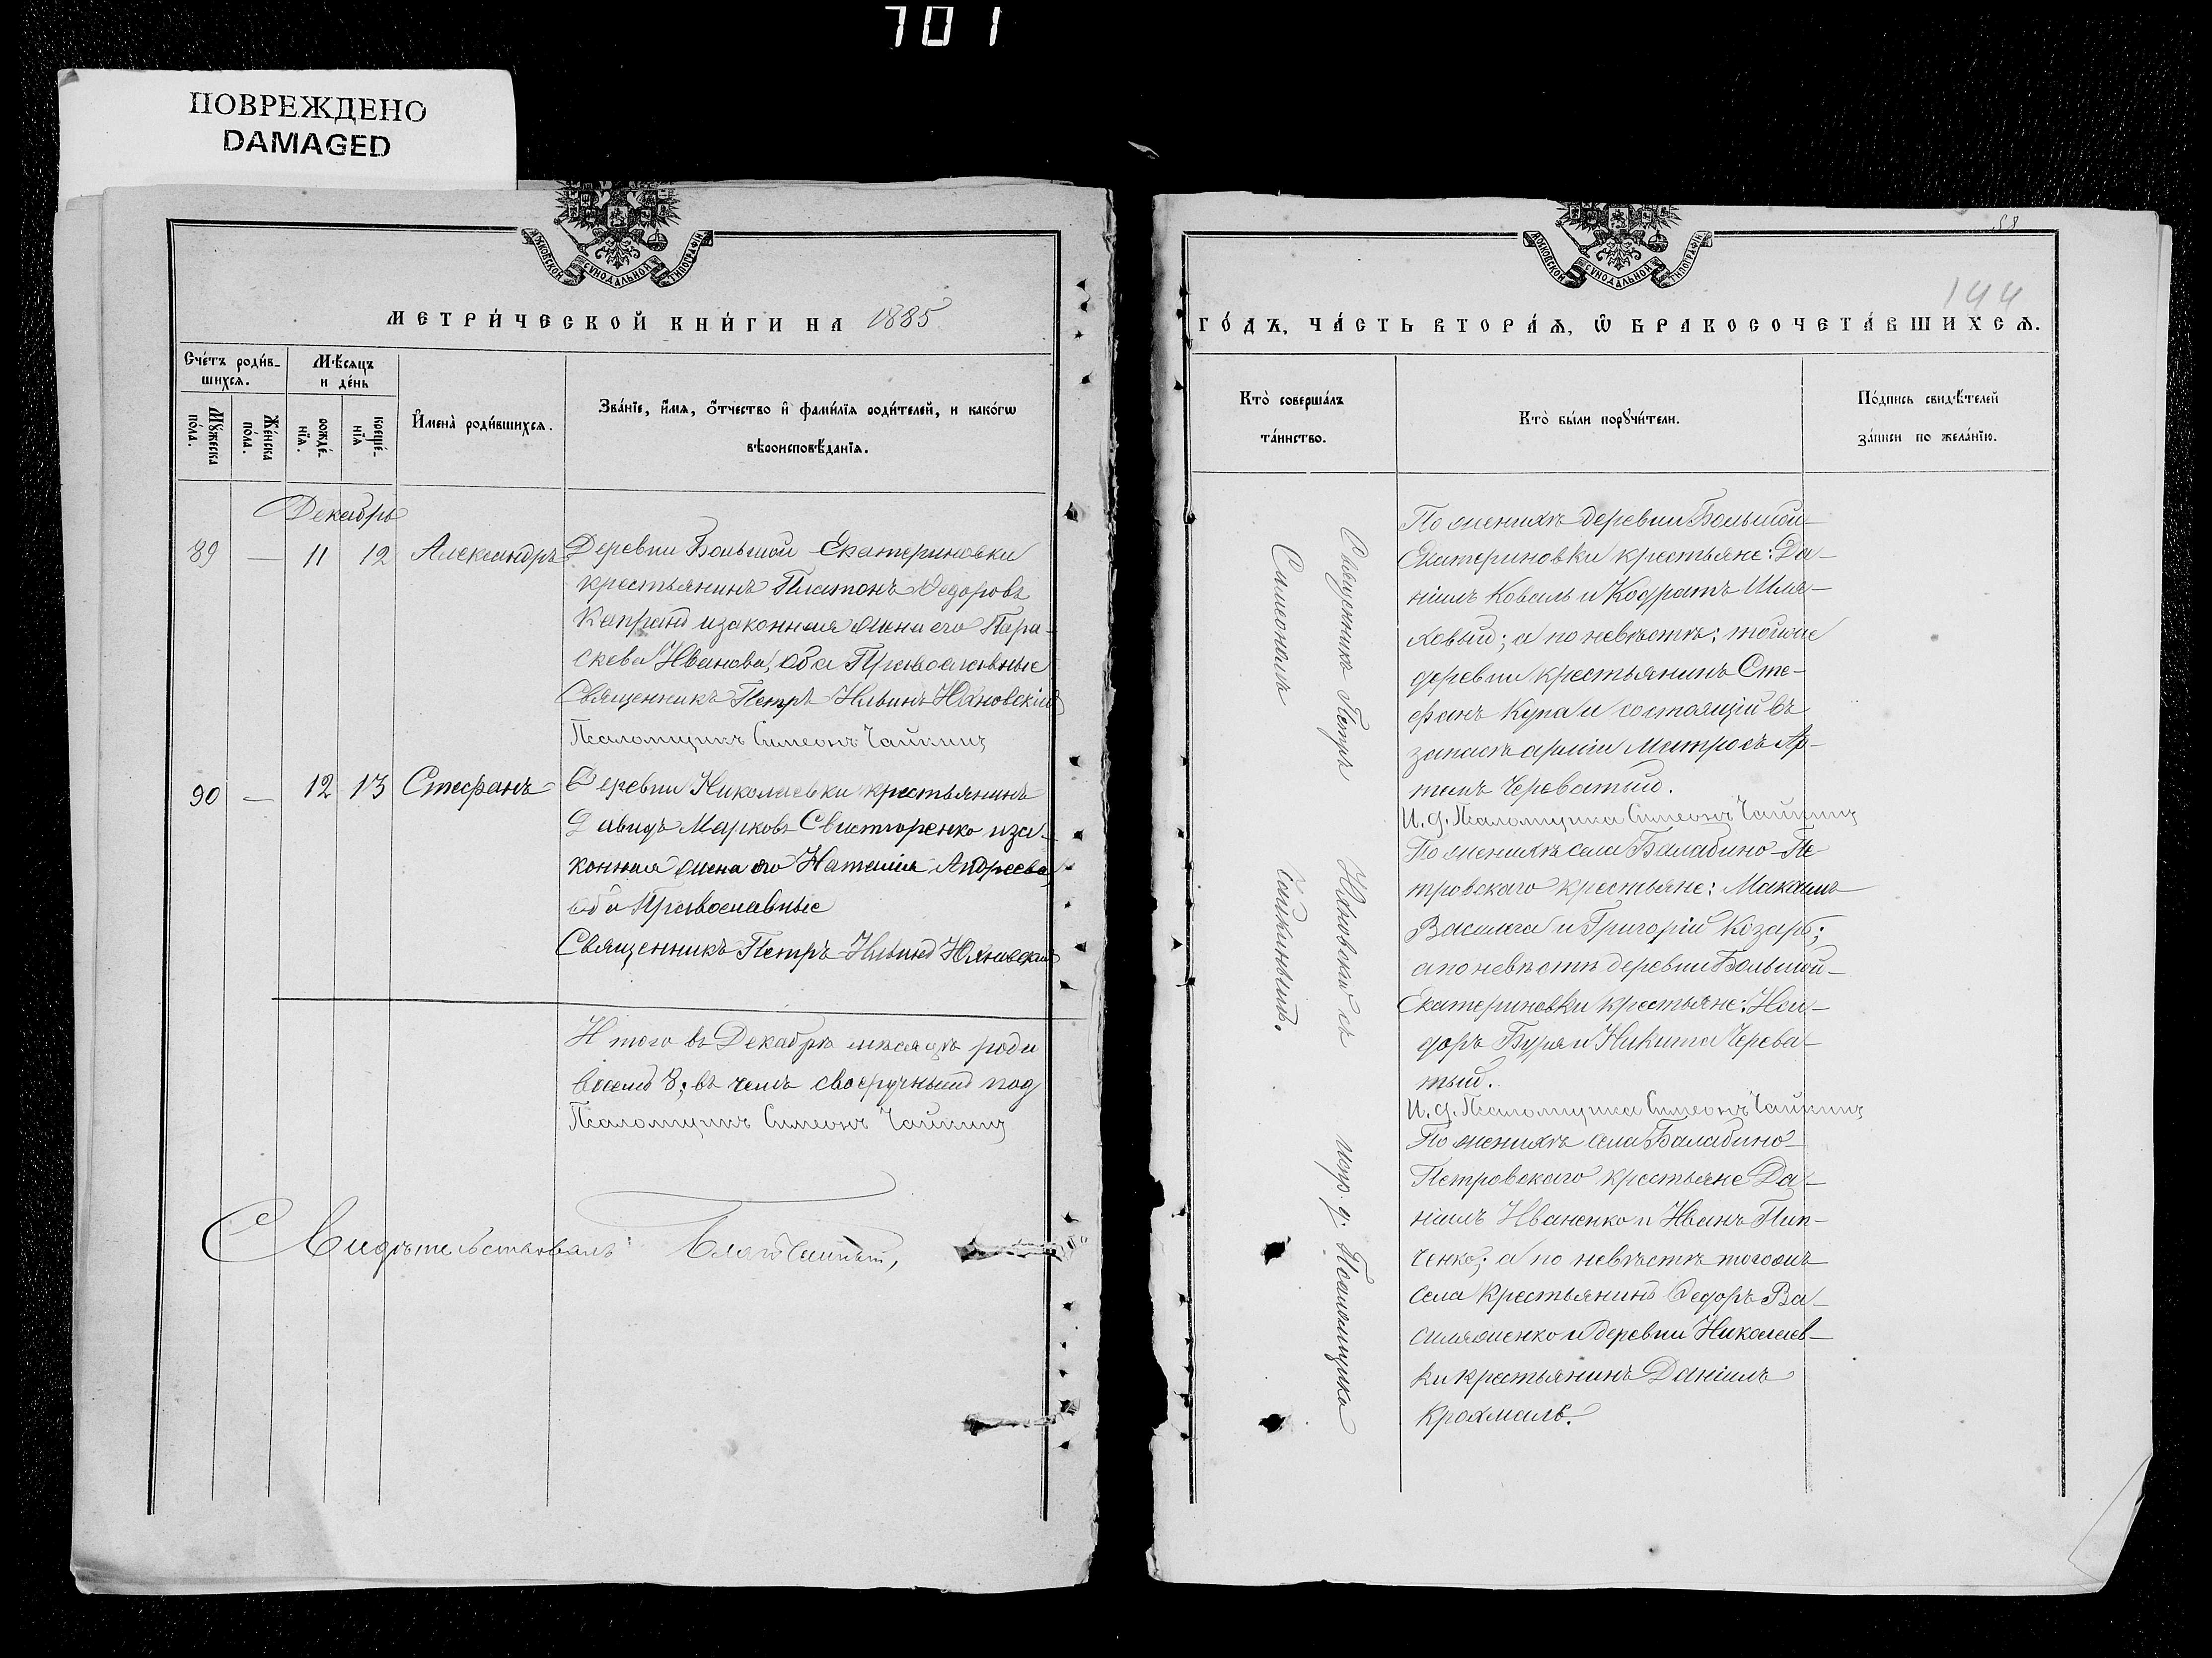 701
ПОВРЕЖДЕНО
DAMAGED
МОСКОВСКОЙ СѴНОДАЛЬНОЙ ТИПОГРАФІИ
МЕТРИ́ЧЕСКОЙ КНИ́ГИ НА 1885
Сче́тъ роди́в-
шихсѧ.
Мѣ́сѧцъ
и де́нь
Мꙋ́жеска
по́ла.
Же́нска
по́ла.
рожде́-
нїѧ.
креще́-
нїѧ
И҆мена̀ роди́вшихсѧ.
Зва́нїе, и҆́мѧ, ѻ҆́тчество и҆ фами́лїѧ роди́телей, и како́гѡ
вѣроисповѣ́данїѧ.
Декабрь
89 — 11 12 Александръ Деревни Большой Екатериновки
крестьянинъ Платонъ Ѳедоровъ
и законная жена его Пара-
скева Иванова, оба Православные
Священникъ Петръ Ильинъ Юхновскій
Псаломщикъ Симеонъ Чайкинъ
90 — 12 13 Стефанъ Деревни Николаевки крестьянинъ
Давидъ Марковъ Свисторенко и за-
конная жена его Наталія Андреева,
оба Православные
Священникъ Петръ Ильинъ Юхновскій
Итого въ Декабрѣ мѣсяцѣ роди
восемь 8; въ чемъ своеручным под
Псаломщикъ Симеонъ Чайкинъ
Свидѣтельствовалъ: Благочинный,
58
144
МОСКОВСКОЙ СѴНОДАЛЬНОЙ ТИПОГРАФІИ
ГО́ДЪ, ЧА́СТЬ ВТОРА́Ѧ, Ѡ҆ БРАКОСОЧЕТА́ВШИХСѦ.
Кто̀ соверша́лъ
та́инство.
Кто̀ бы́ли порꙋчи́тели.
По́дпись свидѣ́телей
за́писи по жела́нїю.
Священникъ Петръ Юхновскій съ испр. д. Псаломщика
Симеономъ Чайкинымъ.
По женихѣ деревни Большой-
Екатериновки крестьяне: Да-
ніилъ Коваль и Кодратъ Шля-
ховый; а по невѣстѣ: тойже
деревни крестьянинъ Сте-
фанъ Купа и состоящій въ
запасѣ арміи Матросъ Ар-
темъ Череватый.
И. д. Псаломщика Симеонъ Чайкинъ
По женихѣ села Балабино-Пе
тровскаго крестьяне: Максимъ
Василага и Григорій Козарь;
а по невѣстѣ деревни Большой-
Екатериновки крестьяне: Иси-
доръ Буря и Никита Черева-
тый.
И. д. Псаломщика Симеонъ Чайкинъ
По женихѣ села Балабино-
Петровскаго крестьяне Да-
ніилъ Иваненко и Иванъ Пип-
ченко; а по невѣстѣ тогожъ
села крестьянинъ Ѳедоръ Ва-
силяженко и деревни Николаев-
ки крестьянинъ Даніилъ
Крохмаль.